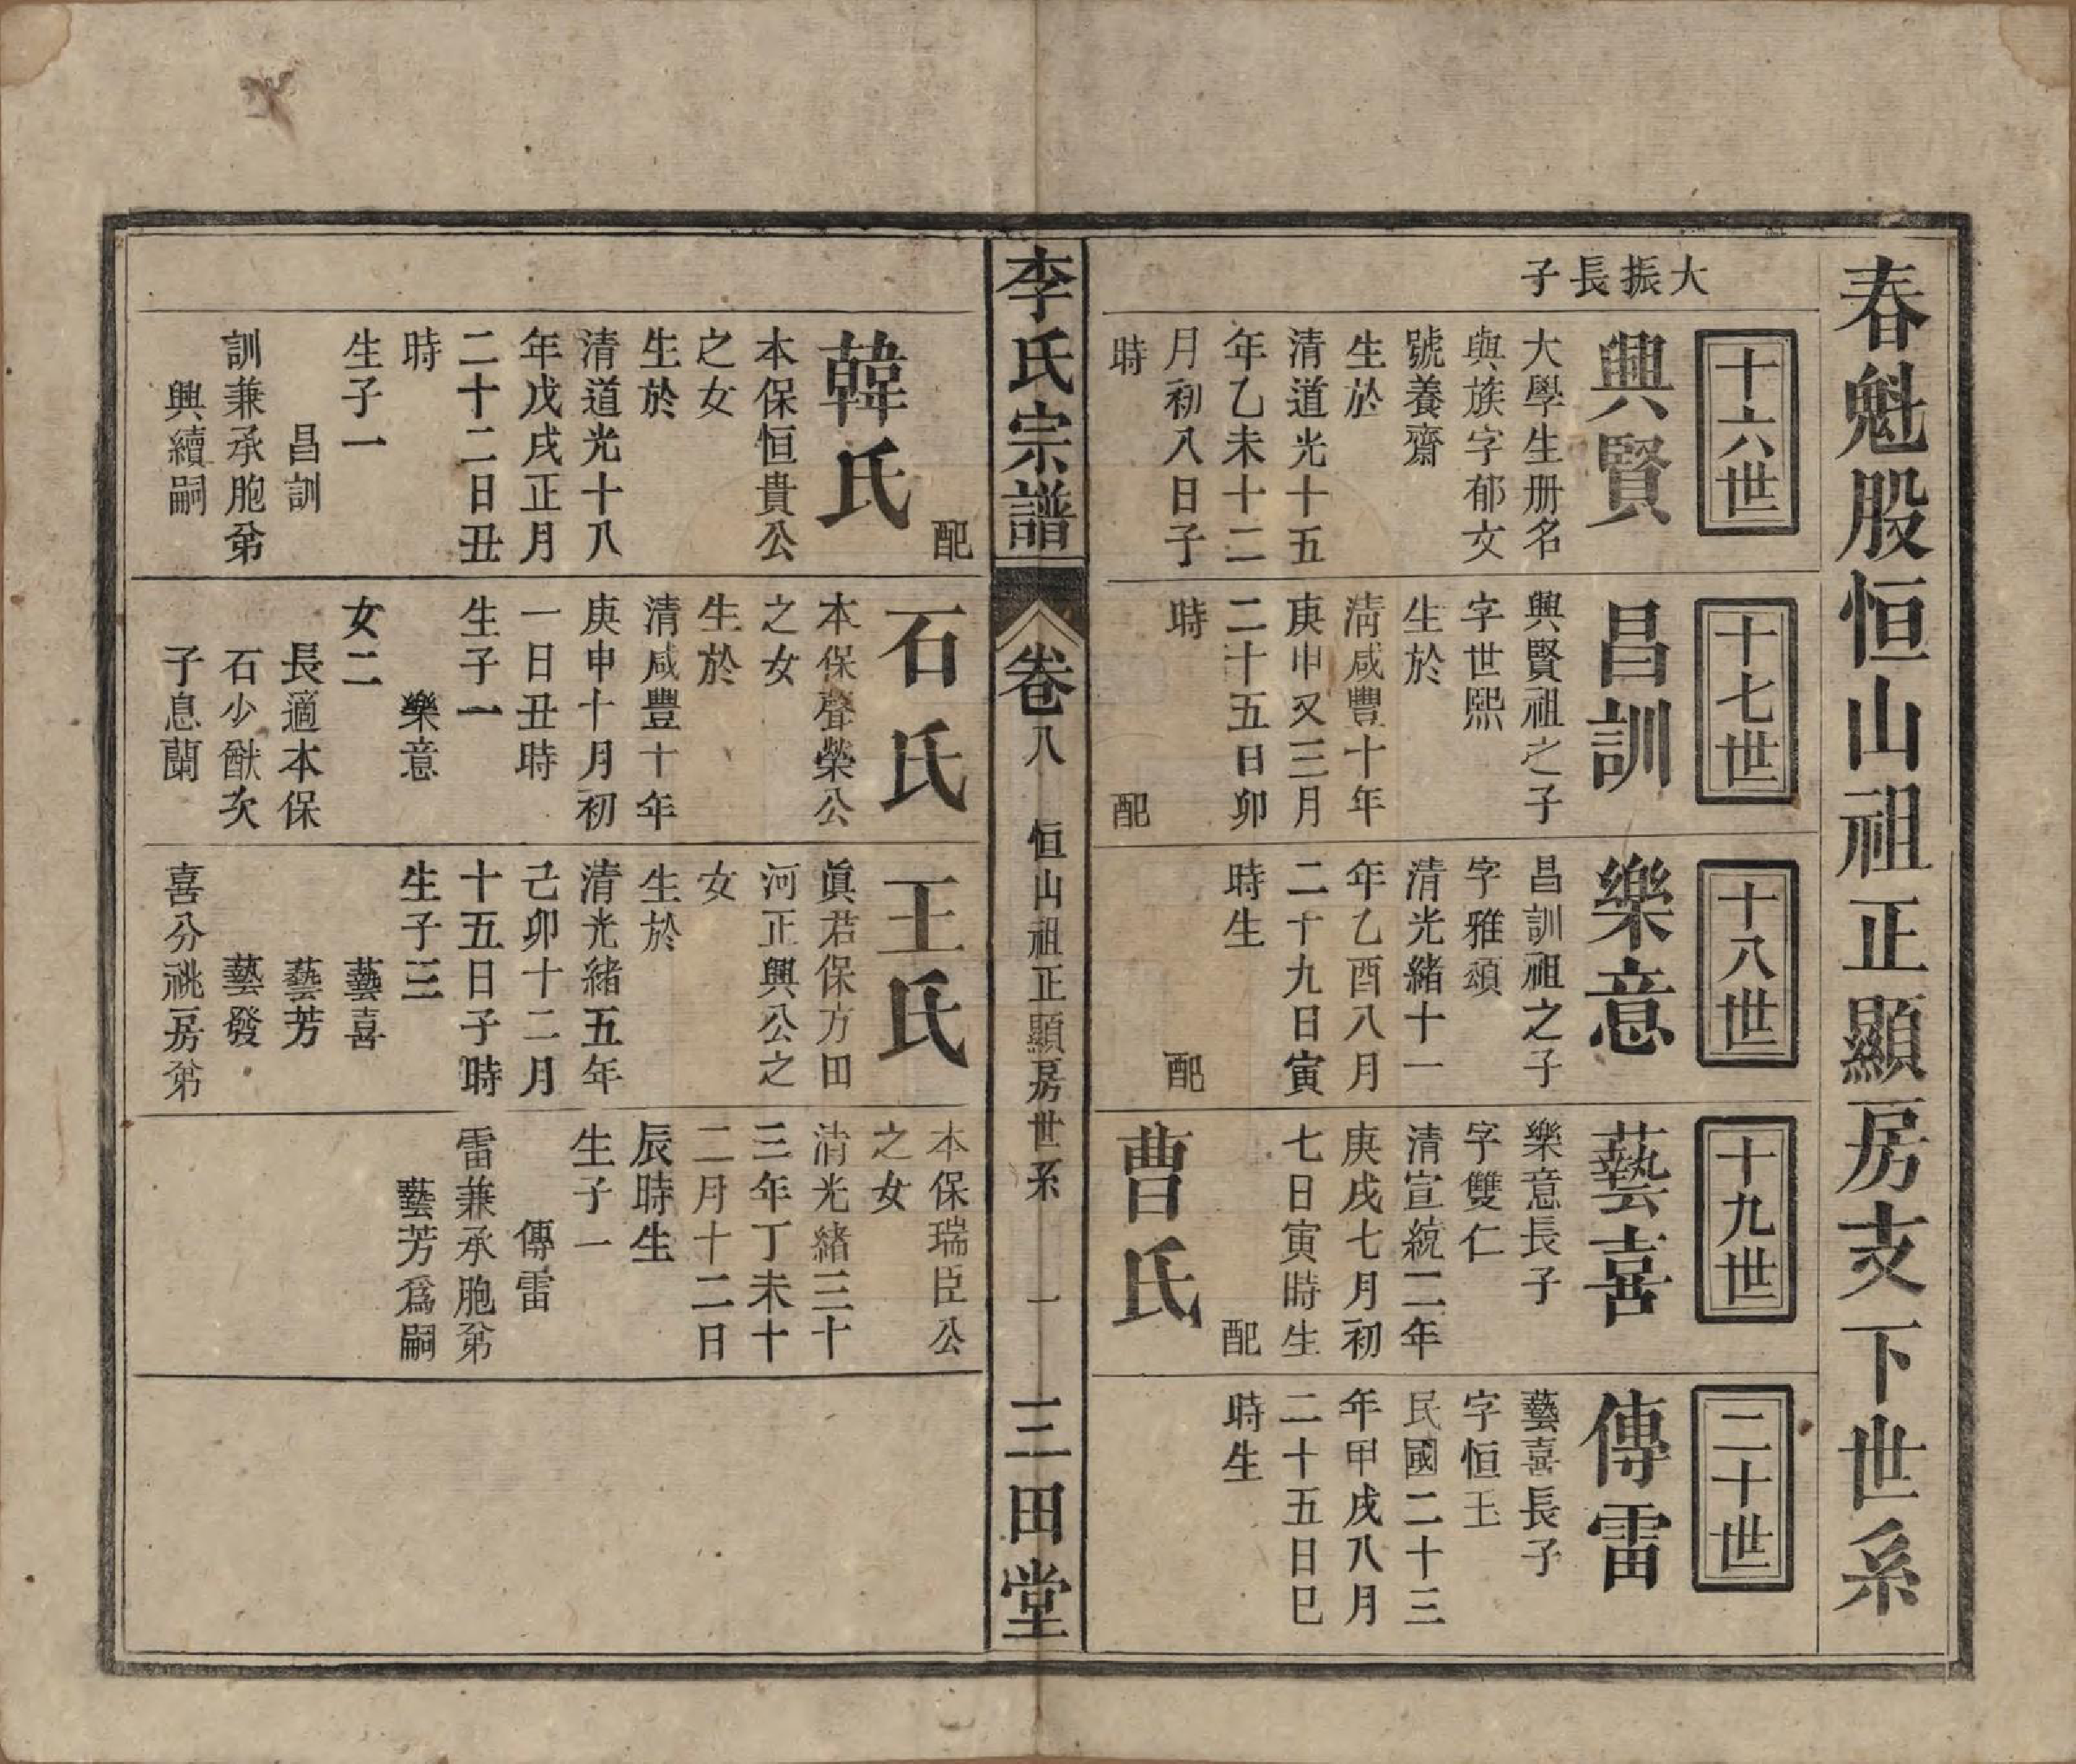 春魁股恒山祖正顯房支下世系
大振長子
十六世
興賢
大學生册名
與族字郁女
號養齋
生於
清道光十五
年乙未十二
月初八日子
時
配
韓氏
本保恒貴公
之女
生於
清道光十八
年戊戌正月
二十二日丑
時
生子一
昌訓
訓兼承胞弟
興續嗣
十七世
昌訓
興賢祖之子
字世熙
生於
清咸豐十年
庚申又三月
二十五日卯
時
配
石氏
本保聲榮公
之女
生於
清咸豐十年
庚申十月初
一日丑時
生子一
樂意
女二
長適本保
石少猷次
子息蘭
十八世
樂意
昌訓祖之子
字雅頌
清光緒十一
年乙酉八月
二十九日寅
時生
配
王氏
眞君保方田
河正興公之
女
生於
清光緒五年
己卯十二月
十五日子時
生子三
藝喜
藝芳
藝發
喜分祧房弟
十九世
藝喜
樂意長子
字雙仁
清宣統二年
庚戌七月初
七日寅時生
配
曹氏
本保瑞臣公
之女
清光緒三十
三年丁未十
二月十二日
辰時生
生子一
傳雷
雷兼承胞弟
藝芳爲嗣
二十世
傳雷
藝喜長子
字恒玉
民國二十三
年甲戌八月
二十五日巳
時生
李氏宗譜
卷八
恒山祖正顯房世系
一
三田堂